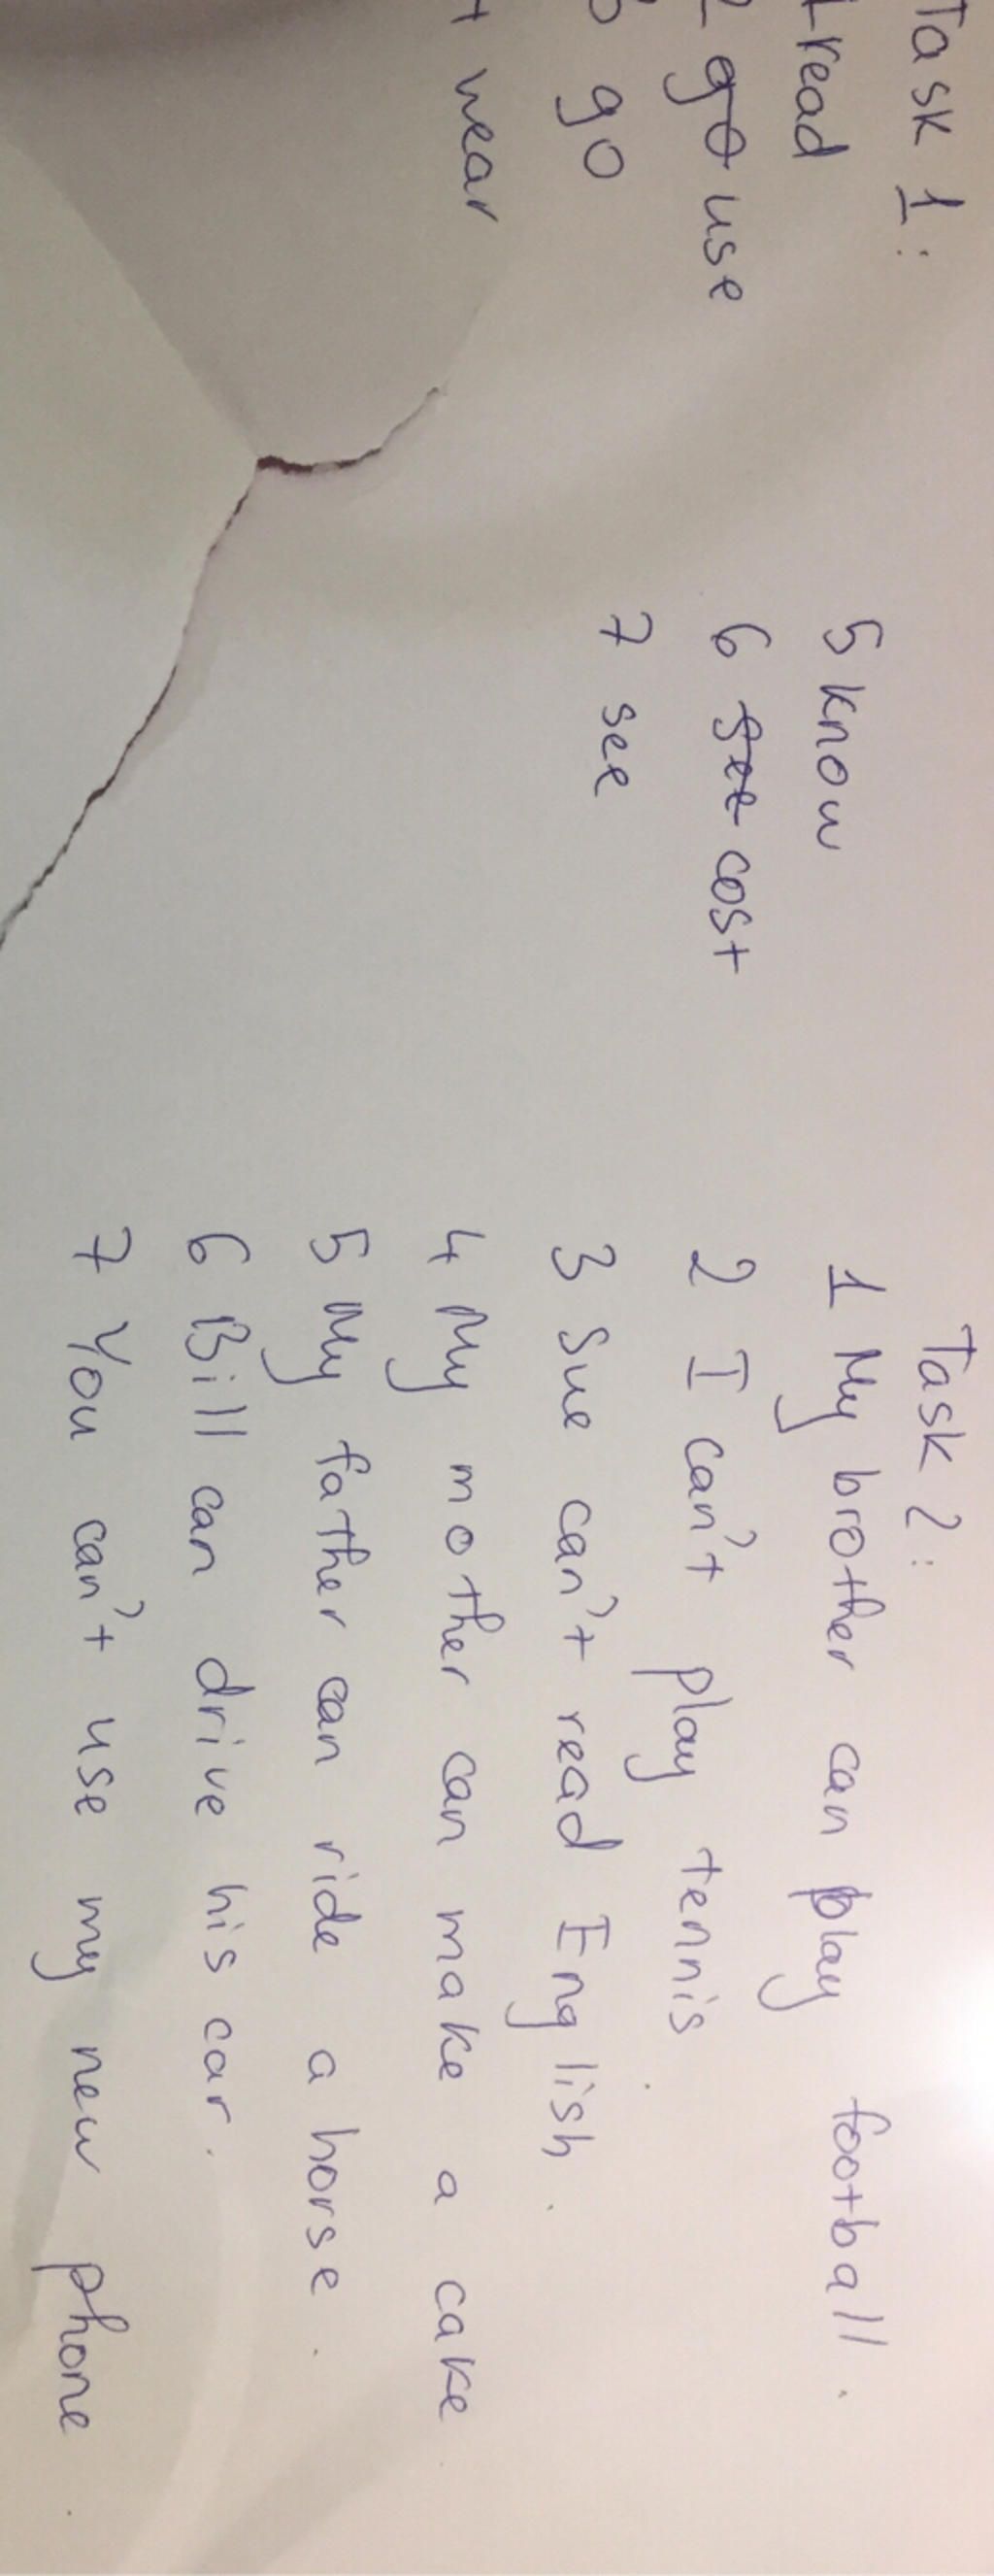 Task 1:
1 read
2 go use
3 go
4 wear
5 know
6 see cost
7 see
Task 2:
1 My brother can play football.
2 I can't play tennis.
3 Sue can't read English.
4 My mother can make a cake.
5 My father can ride a horse.
6 Bill can drive his car.
7 You can't use my new phone.